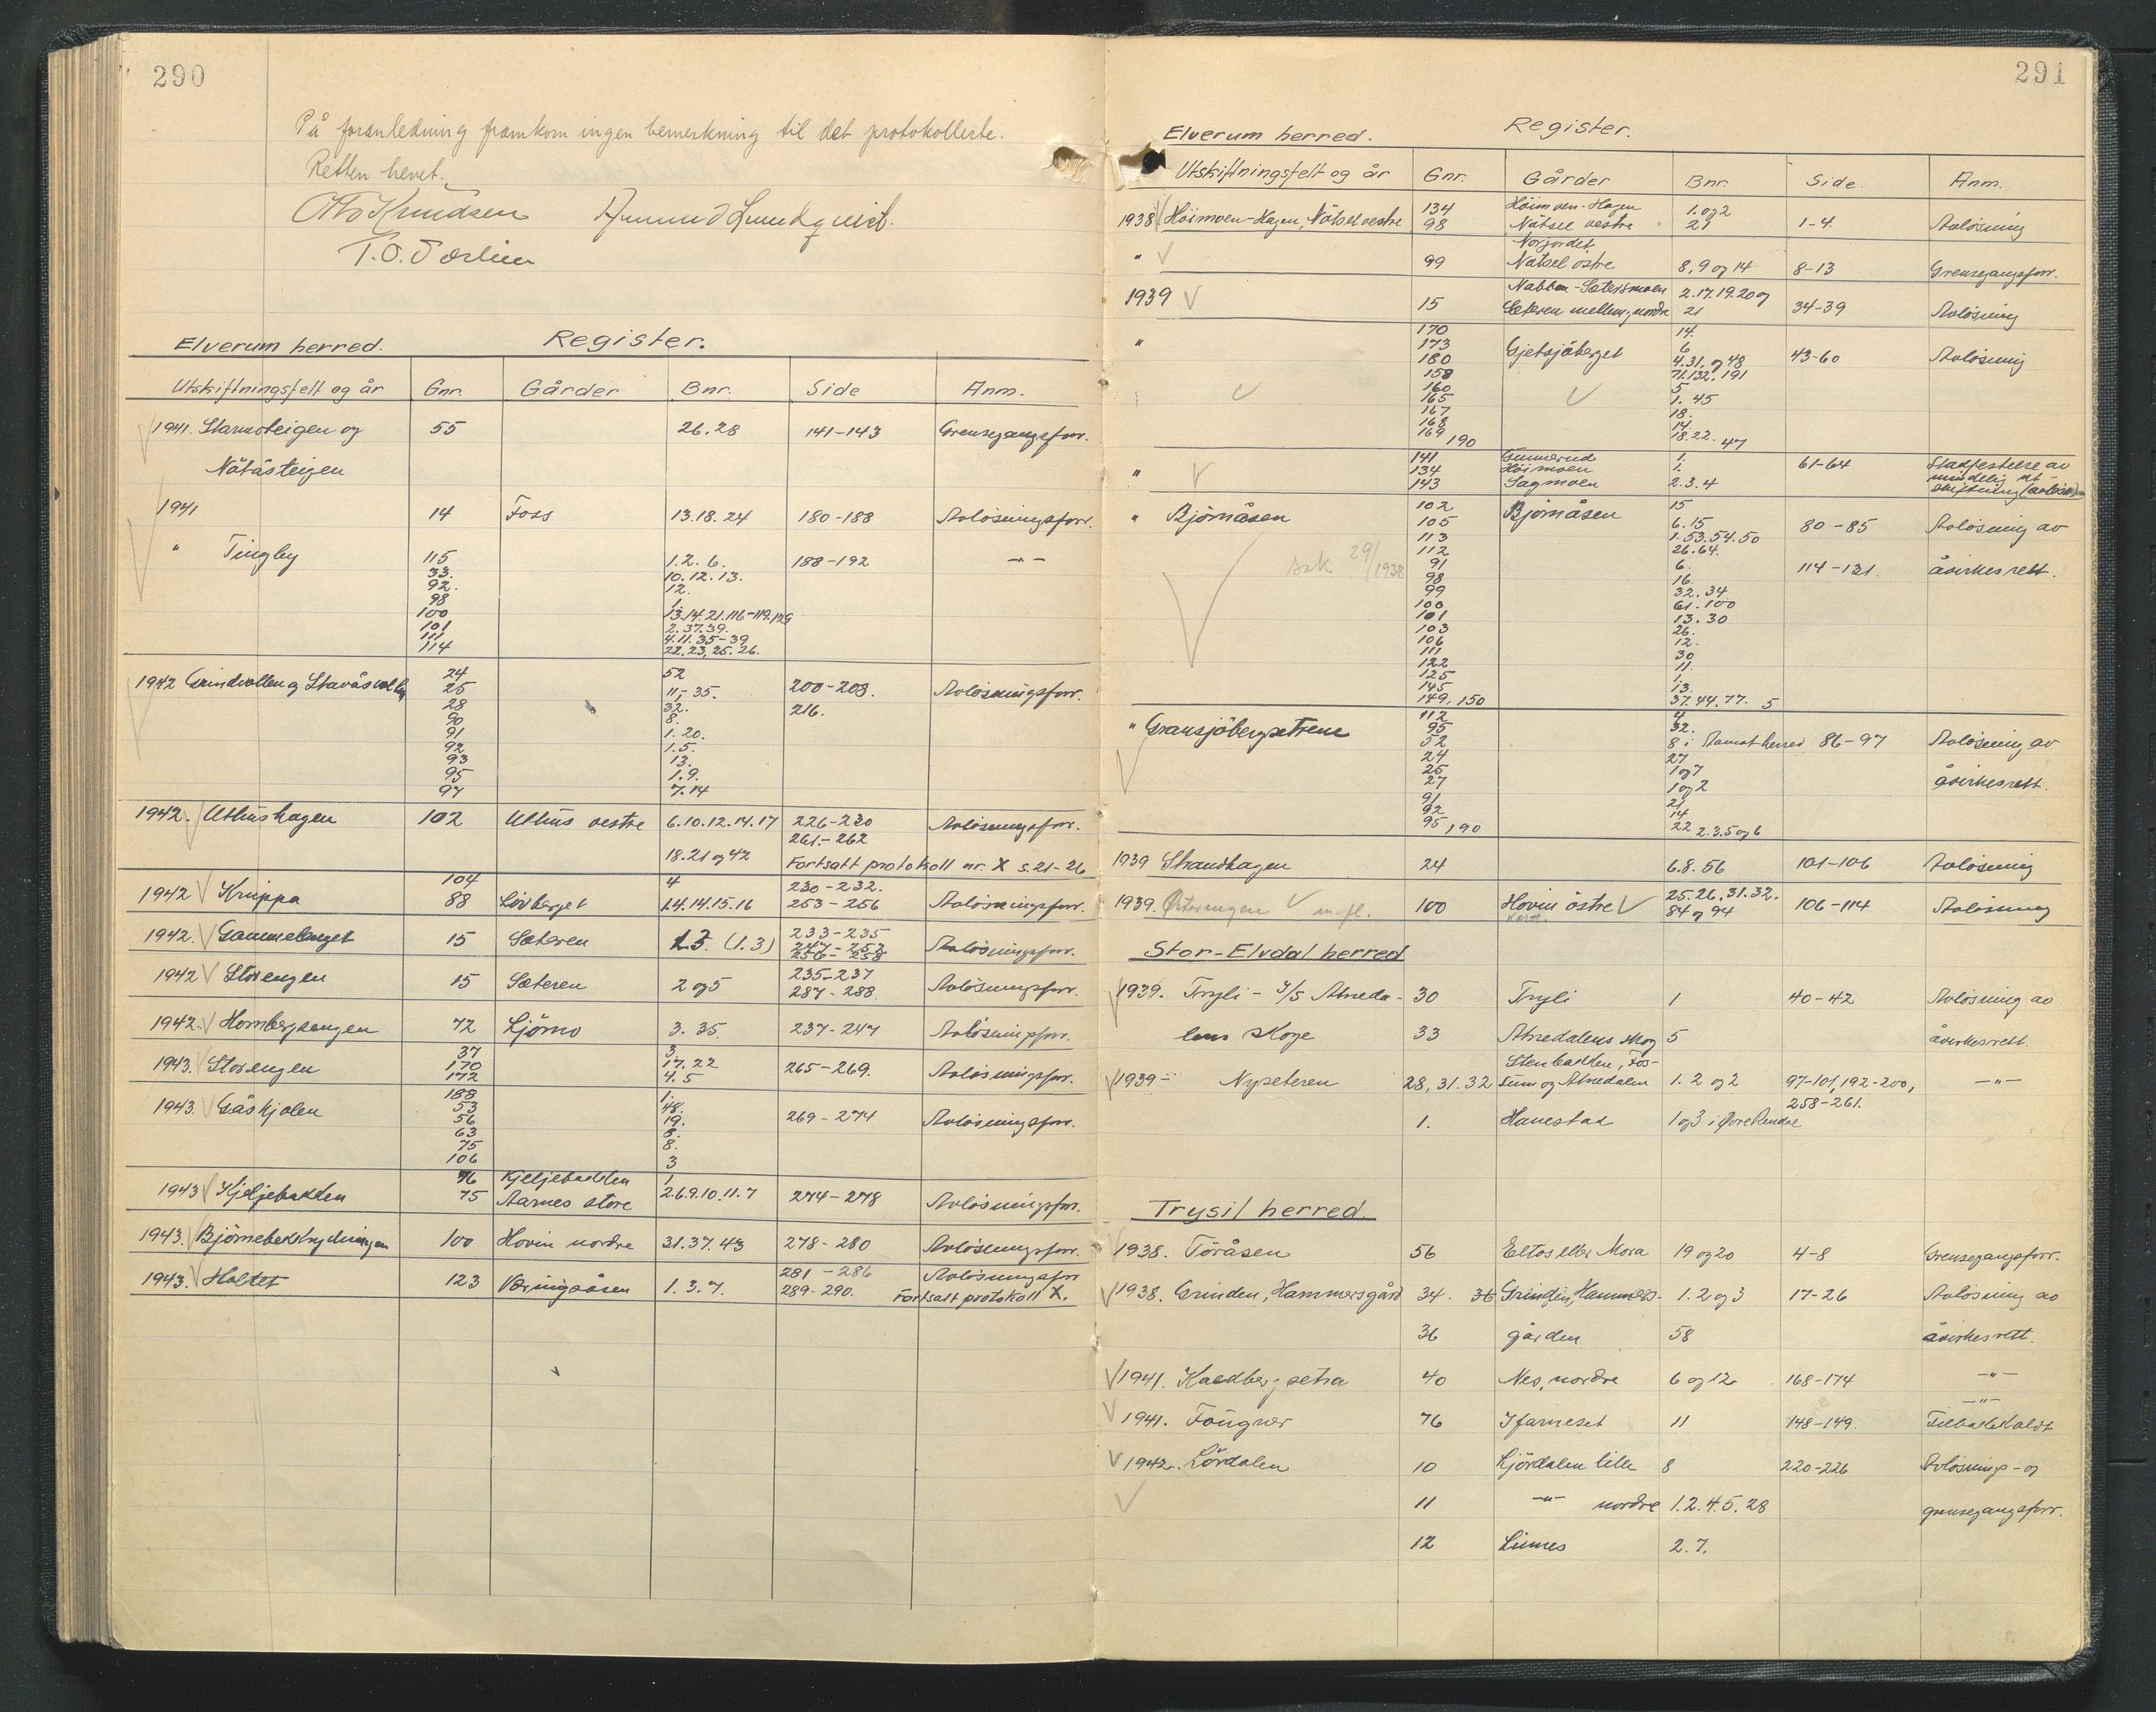 290
På foranledning framkom ingen bemerkning til det protokollerte.
Retten hevet.
Otto Knudsen Amund Lundquist.
Elverum herred. Register.
Utskiftningsfelt og år Gnr. Gårder Bnr. Side Anm.
1941. Starmoteigen og 55 26.28 141-143 Grensegangsforr.
Nötåsteigen
1941 14 Foss 13.18.24 180-188 Avlösningsforr.
" Tingby 115 1.2.6. 188-192 -"-
33. 10.12.13.
92. 12.
98 1.
100 13.14.21.116-119.129
101 2.37.39.
111 4.11.35-39
114 22.23.25.26.
1942 Grindvollen og 24 52
25 11,-35. 200-208. Avlösningsforr.
28 32. 216.
90 8.
91 1.20.
92 1.5.
93 13.
95 1.9.
97 7.14
1942. Uthushagen 102 Uthus vestre 6.10.12.14.17 226-230 Avlösningsforr.
261.-262
18.21 og 42 Fortsatt protokoll nr. X s.21-26
104 4 230-232.
1942 Kruppa 88 Lövberget 1.4.14.15.16 253-256 Avlösningsforr.
1942. Gammelenget 15 Sæteren 1.3. (1.3) 233-235 Avlösningsforr.
247-252
256-258
1942 Storengen 15 Sæteren 2 og 5 235-237 Avlösningsforr.
287-288
1942. Hornbergsengen 72 Ljörmo 3.35. 237-247 Avlösningsforr.
37 3.
1943. Storengen 170 17.22 265-269. Avlösningsforr.
172 4.5
188 1.
1943. Gåskjolen 53 48. 269-274 Avlösningsforr.
56 19.
63 8.
75 8.
106 3
76 Kjeljebakken 1
1943 Kjeljebakken 75 Aarnes store 2.6.9.10.11.7 274-278 Avlösningsforr.
1943. Björnebekkrydningen 100 Hovin nordre 31.37.43 278-280 Avlösningsforr.
1943. Holtet 123 Væringsåsen 1.3.7. 281-286 Avlösningsforr
289-290. Fortsatt protokoll X.
291
Elverum herred. Register.
Utskiftningsfelt og år Gnr. Gårder Bnr. Side. Anm.
1938 Höimoen-Hagen, Nötsel vestre 134 Höimoen-Hagen 1.og 2
98 Nötsel vestre 21 1-4. Avlösning
Norjordet
" 99 Nötsel östre 8,9 og 14 8-13 Grensegangsforr.
1939 Nabben-Sætersmoen 2.17.19.20 og
15 Sæteren mellem, nordre 21 34-39 Avlösning
170 14.
" 173 6
180 Gjetsjöberget 4.31. og 48 43-60 Avlösning
158 71.132.191
160 5
165 1.45
167 18.
168 14.
169, 190 18.22. 47
141 Gunnerud 1.
" 134 Höimoen 1. 61-64 Stadfestelse av
143 Sagmoen 2.3.4 mindelig ut-
skiftning (avlösn)
" Björnåsen 102 Björnåsen 15
105 6.15 80-85 Avlösning av
113 1.53.54.50
112 26.64.
sak 29/1938 91 6. 114-131 åvirkesrett.
98 16.
99 32.34
100 61-100
101 13.30
103 26.
106 12.
111 30
122 11.
125 1.
145 13.
149, 150 37.44.77. 5
112 4
" Gransjöbergsetrene 95 32.
52 8 i Aamot herred 86-97 Avlösning av
24 27
25 1 og 7
27 1 og 2 åvirkesrett.
91 21
92 14
95, 190 22 2.3.5 og 6
1939 Strandhagen 24 6.8.56 101-106 Avlösning
1939. Østerengen m.fl. 100 Hovin östre 25.26.31.32. 106-114 Avlösning
84 og 94
Stor-Elvdal herred
1939. Tryli - I/S Atneda- 30 Tryli 1 40-42 Avlösning av
lens skoge 33 Atnedalens skog 5 åvirkesrett.
Stenbakken, Fos-
1939- Nyseteren 28,31.32 sum og Atnedalen 1.2 og 2 97-101,192-200, -"-
258-261.
1. Hanestad 1 og 3 i Øvre Rendal
Trysil herred.
1938. Töråsen 56 Eltos eller Mora 19 og 20 4-8 Grensegangsforr.
1938. Grinden, Hammersgård 34. 36 Grinden, Hammers- 1.2 og 3 17-26 Avlösning av
36 gården 58 åvirkesrett.
1941. setra 40 Nes, nordre 6 og 12 168-174 -"-
-"-
1941. Föugner 76 11 148-149. Tilbakekaldt
1942. Lördalen 10 Ljördalen lille 8 220-226 Avlösnings- og
11 -"- nordre 1.2.4.5.28 grensegangsforr.
12 Linnes 2.7.